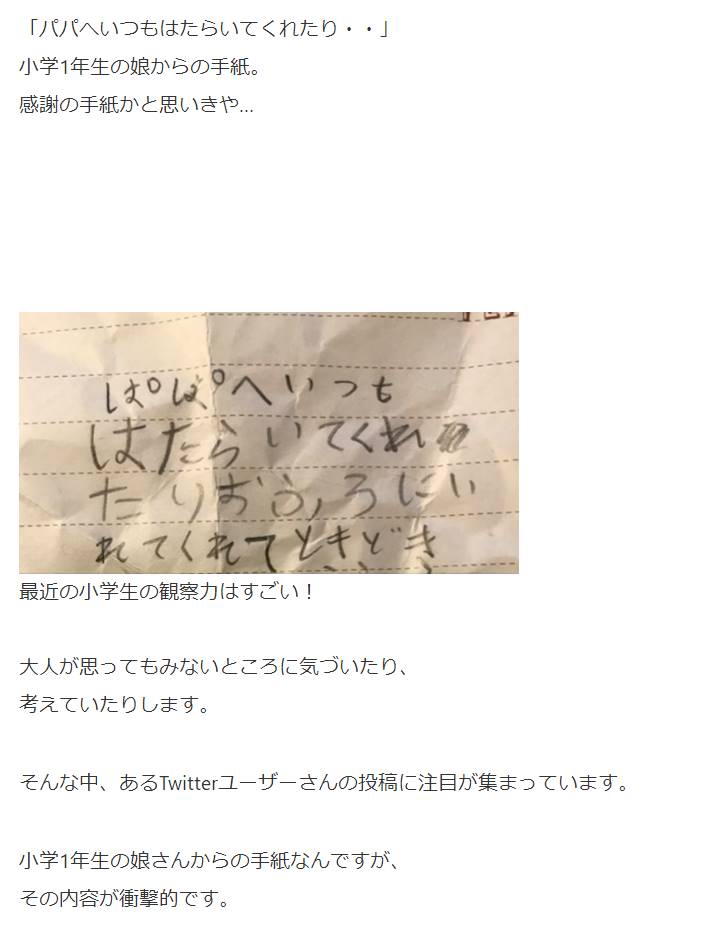 「パパへいつもはたらいてくれたり・・」
小学1年生の娘からの手紙。
感謝の手紙かと思いきや...
ぱぱへいつも
はたらいてくれ
たりおふろにい
れてくれてときどき
最近の小学生の観察力はすごい！
大人が思ってもみないところに気づいたり、
考えていたりします。
そんな中、あるTwitterユーザーさんの投稿に注目が集まっています。
小学1年生の娘さんからの手紙なんですが、
その内容が衝撃的です。